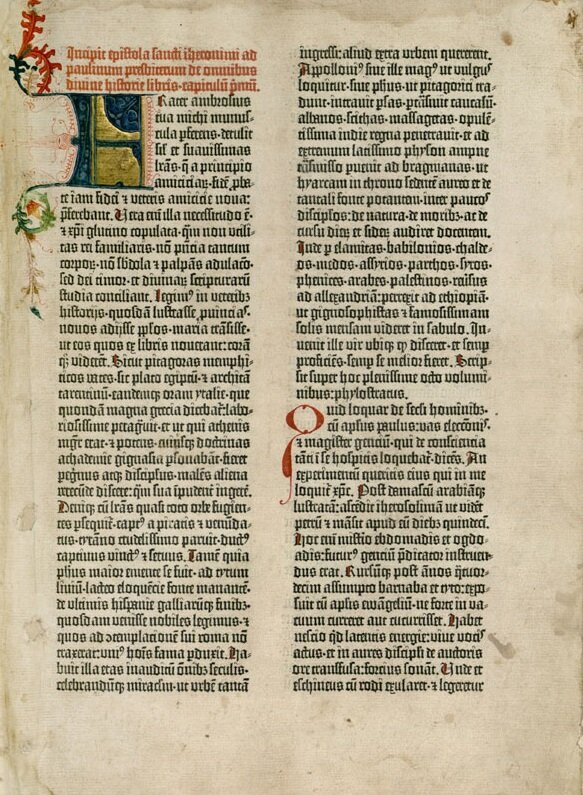 Incipit epistola sancti iheronimi ad
paulinum presbiterum de omnibus
divine historie libris· capitulū p̄mū.
Frater ambrosius
tua michi munus-
cula ꝑferens· detulit
sil et suavissimas
lr̄as· q̄ a principio
amiciciaꝝ· fidē ꝓba-
te iam fidei ⁊ veteris amicicie nova:
p̄ferebant. Vera em̄ illa necessitudo ē·
⁊ xp̄i glutino copulata· qm̄ non utili-
tas rei familiaris· nō pn̄tia tantum
corpoꝝ· nō sb̄dola ⁊ palpās adulacō·
sed dei timor· et divinaꝝ scripturarū
studia conciliant. Legimꝰ in veteribꝫ
historijs· quosdā lustrasse ꝓuincias·
novos adijsse ꝓlos· maria trāsisse·
ut eos quos ex libris noverant: corā
qꝫ viderēt. Sicut pitagoras memphi-
ticos vates· sic plato egiptū· ⁊ architā
tarentinū· eandemqꝫ oram ytalie· que
quondā magna grecia dicebat̄: labo-
riosissime peragͣuit· et ut qui athenis
mgr̄ erat· ⁊ potens· cuiusqꝫ doctrinas
achademie gignasia ꝑsonabāt· fieret
peg̓nus atqꝫ discipulus· malēs aliena
verecunde discere: qͣm sua īpudent̓ ingerē.
Deniqꝫ cū lr̄as quasi toto orbe fugien-
tes ꝑsequit̄· captꝰ a piratis ⁊ venūda-
tus· tyrāno crudelissimo paruit· ductꝰ
captivus vinctꝰ ⁊ servus. Tamē quia
ph̄us maior emente se fuit· ad tytum
liviū· lacteo eloquētie fonte manantē·
de ultimis hispanie galliarūqꝫ finibꝫ·
quosdam venisse nobiles legimus· ⁊
quos ad ꝯtemplacionē sui roma nō
traxerat: unīꝰ hoīs fama ꝑduxit. Ha-
buit illa etas inauditū oībꝫ seculis·
celebrandūqꝫ miraculū· ut urbē tantā
ingressi: aliud extra urbem quererent.
Apolloniꝰ sive ille magꝰ ut vulgus
loquitur· sive ph̄us· ut pitagorici tra-
dunt· intravit ꝑsas· ꝑtransivit caucasū·
albanos· scithas· massagetas· opulē-
tissima indie regna penetravit· et ad
extremum latissimo physon ampne
trāsmisso ꝑvenit ad bragmanas· ut
hyarcam in throno sedentē aureo et de
tantali fonte potantem· inter paucos
discipl̄os· de natura· de moribꝫ· ac de
cursu dieꝝ et sideꝝ audiret docentem.
Inde ꝑ elamitas· babilonios· chalde-
os· medos· assyrios· parthos· syros·
phenices· arabes· palestinos· reversus
ad allexandriā: perrexit ad ethiopiā·
ut gignosophistas ⁊ famosissimam
solis mensam videret in sabulo. In-
venit ille vir ubiqꝫ qd̄ disceret· et semp̄
proficiēs· semp̄ se melior fieret. Scrip-
sit super hoc plenissime octo volumi-
nibus: phylostratus.
Quid loquar de seculi hominibꝫ·
cū apostolus paulus: vas electionis·
⁊ magister gentiū· qui de conscientia
tāti ī se hospitis loquebat̄· dicēs. An
experimentū queritis eius qui in me
loquit̄ xp̄c. Post damascū arabiāqꝫ
lustratā: ascēdit iherosolimā ut videt̓
petrū ⁊ māsit apud eū diebꝫ quindeci.
Hoc em̄ misterio ebdomadis et ogdo-
adis: futurꝰ gentiū p̄dicator instruen-
dus erat. Rursūqꝫ post ānos q̄tuor-
decim assumpto barnaba et tyto: expo-
suit cū apostolis ewāgeliū· ne forte in va-
cuum curreret aut cucurrisset. Habet
nescio qd̄ latentis energie: vive vocis
actus· et in aures discipuli de auctoris
ore transfusa: forcius sonat. Unde et
eschineus cū rodi exularet· ⁊ legeretur